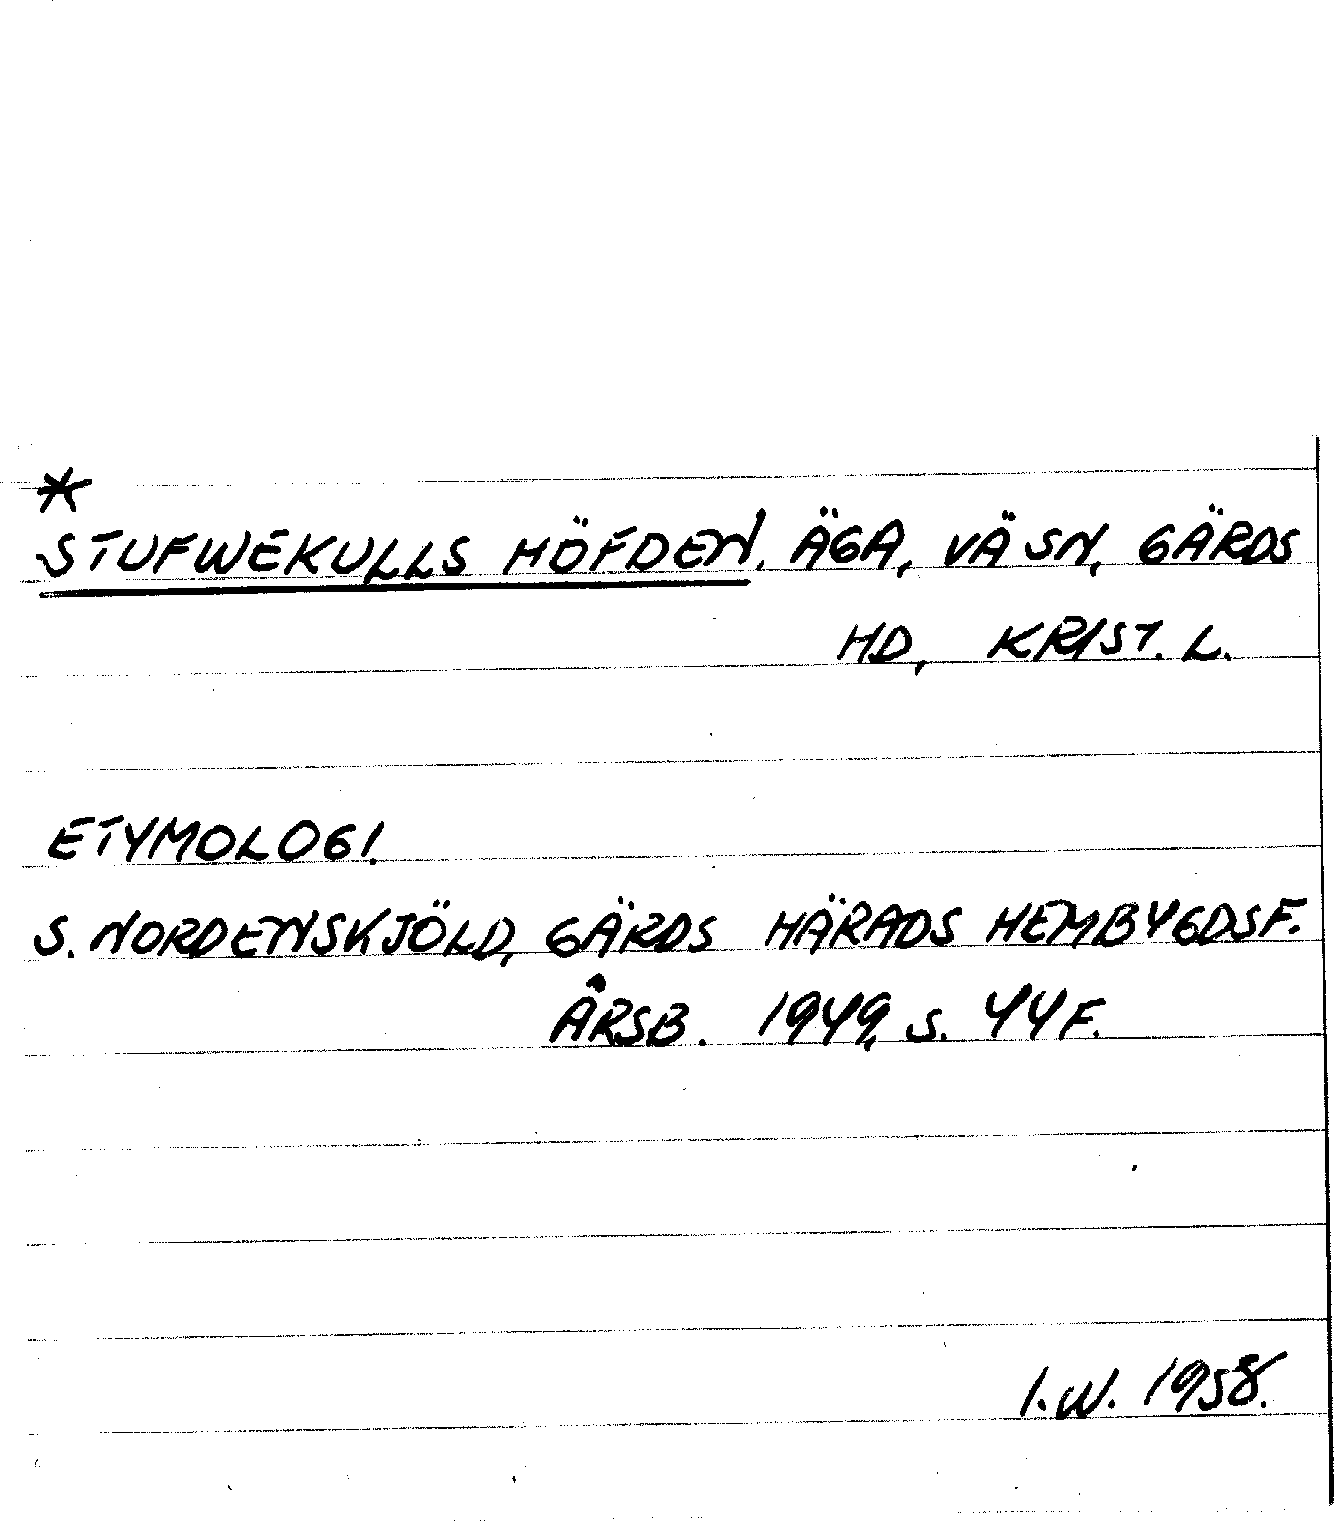 *
STUFWEKULLS HÖFDEN. ÄGA, VÄ SN, GÄRDS
HD, KRIST. L.
ETYMOLOGI.
S. NORDENSKJÖLD, GÄRDS HÄRADS HEMBYGDSF.
ÅRSB. 1949, S. 44 F.
I.W. 1958.